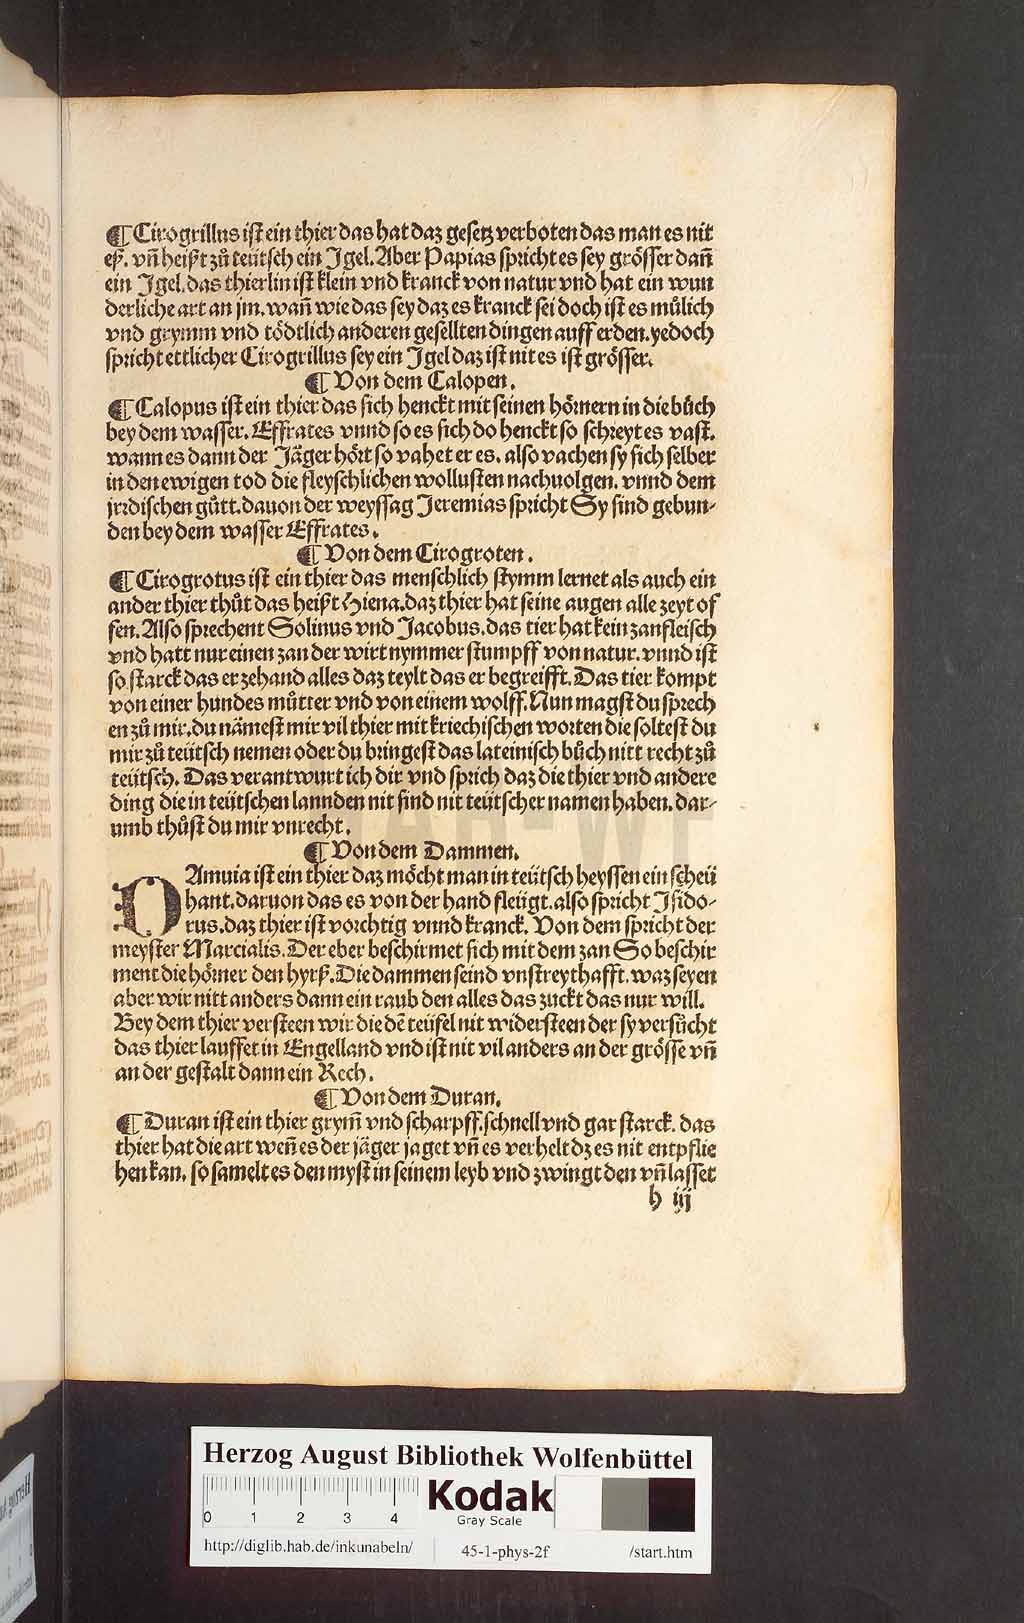 ¶ Cirogrillus ist ein thier das hat daz gesetz verboten das man es nit
eß. vn̄ heißt zů teütsch ein Jgel. Aber Papias spricht es sey grösser dañ
ein Jgel. das thierlin ist klein vnd kranck von natur vnd hat ein wun
derliche art an jm. wañ wie das sey daz es kranck sei doch ist es mülich
vnd grymm vnd tödtlich anderen gesellten dingen auff erden. yedoch
spricht ettlicher Cirogrillus sey ein Jgel daz ist nit es ist grösser.
¶ Von dem Calopen.
¶ Calopus ist ein thier das sich henckt mit seinen hörnern in die bůch
bey dem wasser. Effrates vnnd so es sich do henckt so schreyt es vast.
wann es dann der Jäger hört so vahet er es. also vachen sy sich selber
in den ewigen tod die fleyschlichen wollusten nachuolgen. vnnd dem
jrrdischen gůtt. dauon der weyssag Jeremias spricht Sy sind gebun-
den bey dem wasser Effrates.
¶ Von dem Cirogroten.
¶ Cirogrotus ist ein thier das menschlich stymm lernet als auch ein
ander thier thůt das heißt Hiena. daz thier hat seine augen alle zeyt of
fen. Also sprechent Solinus vnd Jacobus. das tier hat kein zanfleisch
vnd hatt nur einen zan der wirt nymmer stumpff von natur. vnnd ist
so starck das er zehand alles daz teylt das er begreifft. Das tier kompt
von einer hundes mütter vnd von einem wolff. Nun magst du sprech
en zů mir. du nämest mir vil thier mit kriechischen worten die soltest du
mir zů teütsch nemen oder du bringest das lateinisch bůch nitt recht zů
teütsch. Das verantwurt ich dir vnd sprich daz die thier vnd andere
ding die in teütschen lannden nit sind nit teütscher namen haben. dar-
umb thůst du mir vnrecht.
¶ Von dem Dammen.
DAmuia ist ein thier daz möcht man in teütsch heyssen ein scheü
hant. daruon das es von der hand fleügt. also spricht Jsido-
rus. daz thier ist vorchtig vnnd kranck. Von dem spricht der
meyster Marcialis. Der eber beschirmet sich mit dem zan So beschir
ment die hörner den hyrß. Die dammen seind vnstreythafft. waz seyen
aber wir nitt anders dann ein raub den alles das zuckt das nur will.
Bey dem thier versteen wir die dē teüfel nit widersteen der sy versůcht
das thier lauffet in Engelland vnd ist nit vil anders an der grösse vn̄
an der gestalt dann ein Rech.
¶ Von dem Duran.
¶ Duran ist ein thier grym̄ vnd scharpff. schnell vnd gar starck. das
thier hat die art weñ es der jäger jaget vn̄ es verhelt dz es nit entpflie
hen kan. so samelt es den myst in seinem leyb vnd zwingt den vn̄ lasset
h iij
HAB-WF
Herzog August Bibliothek Wolfenbüttel
0 1 2 3 4
Kodak
Gray Scale
http://diglib.hab.de/inkunabeln/ 45-1-phys-2f /start.htm